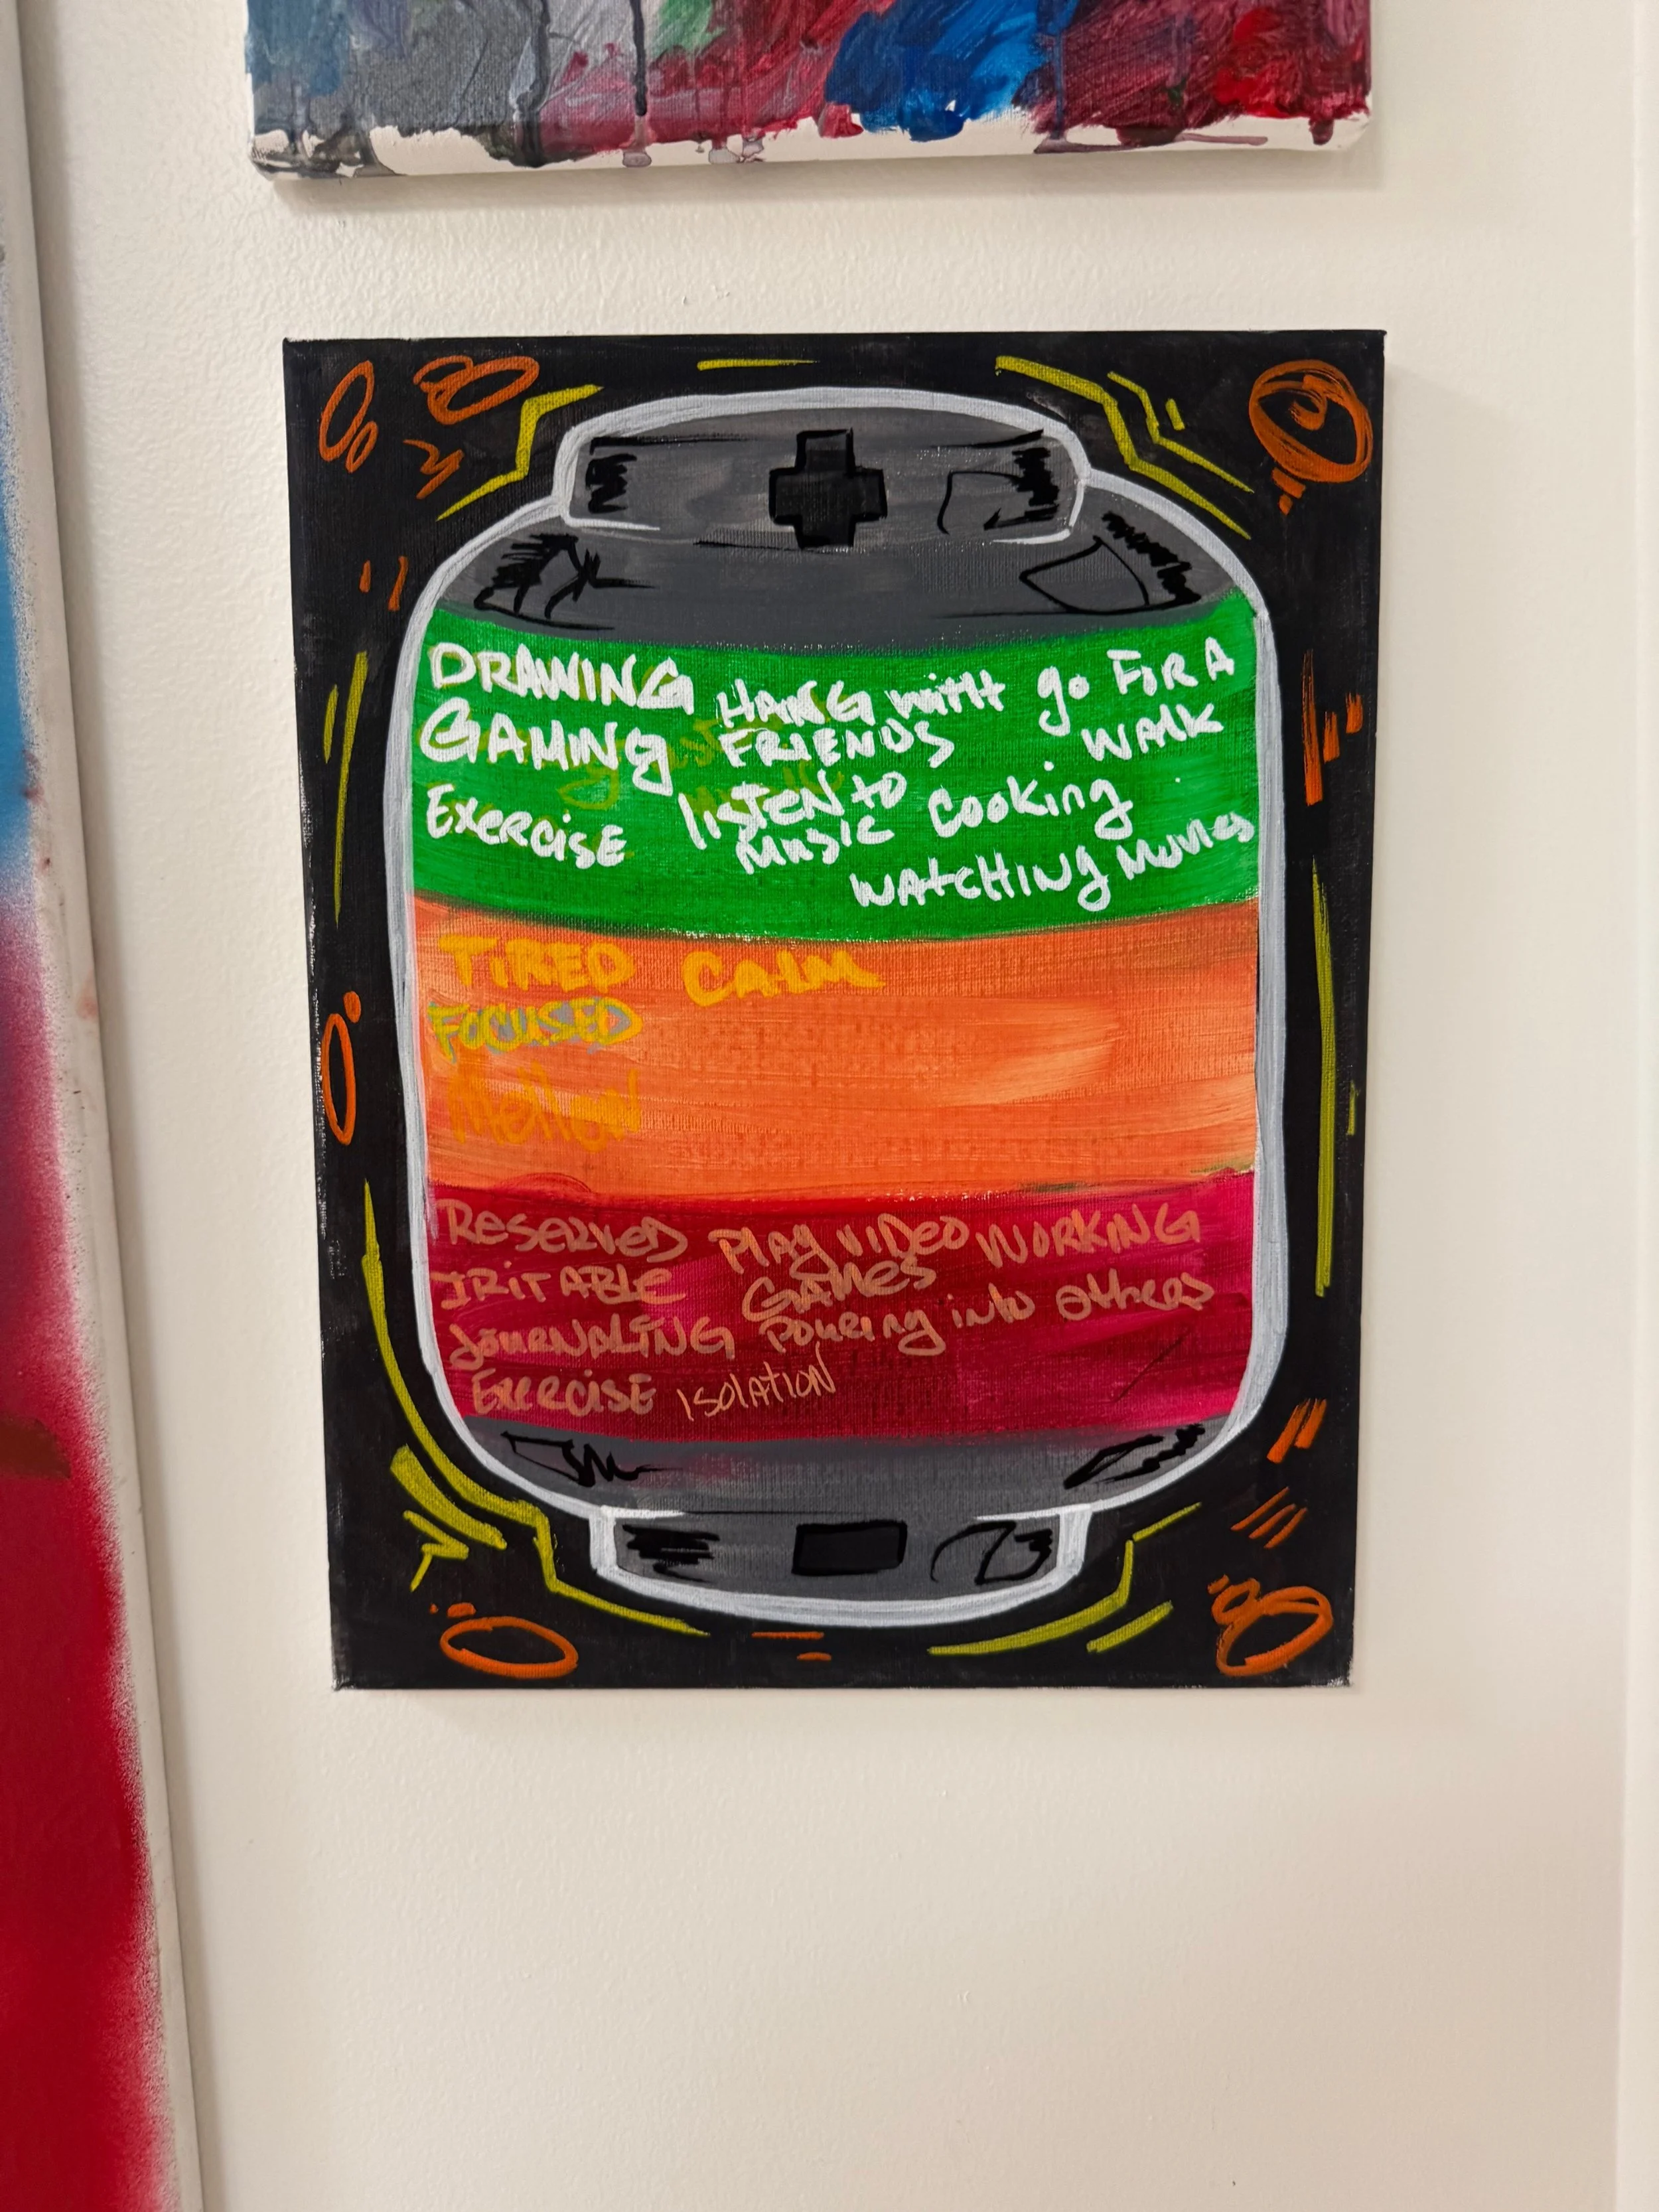 DRAWING
GAMING
EXERCISE
HANG with
FRIENDS
listEN to
MUSIC
go FOR A
WALK
Cooking
WATCHING MOVIES
TiRED
CALM
FOCUSED
Mellow
RESERVED
IRITABLE
JOURNALING
EXERCISE
PLAY VIDEO
GAMES
WORKING
POURING into others
ISOLATION